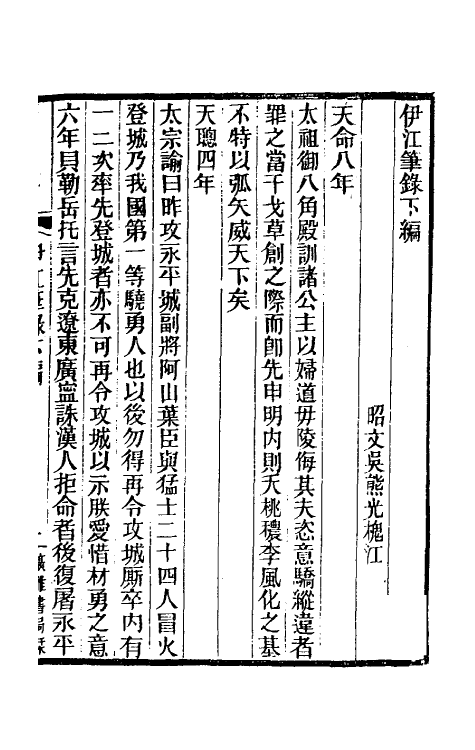 伊江筆錄下編
昭文吳熊光槐江
天命八年
太祖御八角殿訓諸公主以婦道毋陵侮其夫恣意驕縱違者
罪之當干戈草創之際而卽先申明內則夭桃穠李風化之基
不特以弧矢威天下矣
天聰四年
太宗諭曰昨攻永平城副將阿山葉臣與猛士二十四人冒火
登城乃我國第一等驍勇人也以後勿得再令攻城厮卒內有
一二次率先登城者亦不可再令攻城以示朕愛惜材勇之意
六年貝勒岳托言先克遼東廣寧誅漢人拒命者後復屠永平